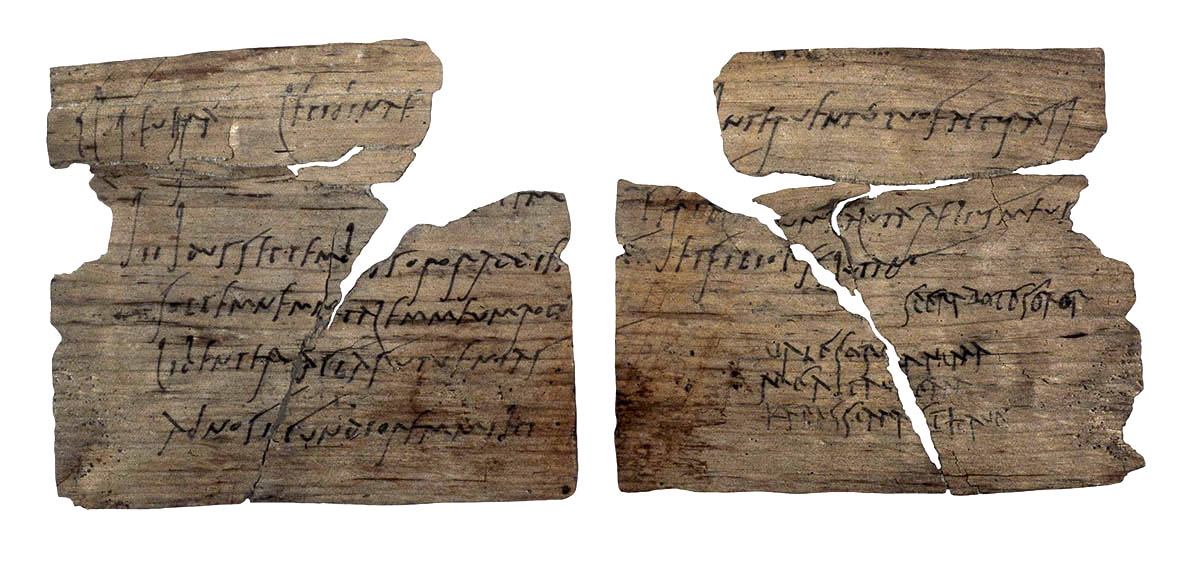 Cl Seuerá Lepidinae
iii Idus Septembr soror ad diem
sollemnem natalem meum rogó
libenter faciás ut uenias
ad nos iucundiorem mihi
interuentú tuo facturá si
Cerial uum salutá Aelius meus
et filiolus salutant
sperabo te soror
uale soror anima
mea ita ualeam
karissima et haue